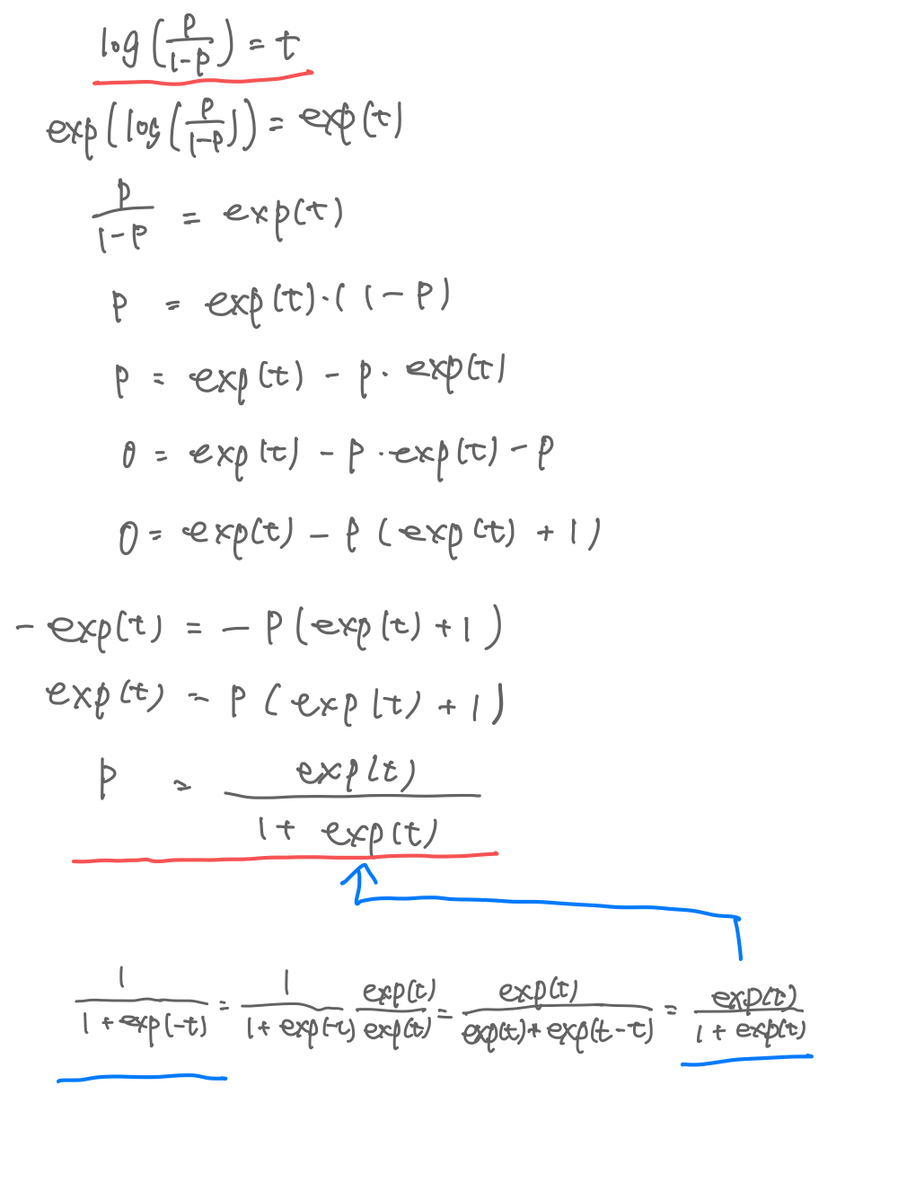 log(p/1-p) = t
exp(log(p/1-p)) = exp(t)
p/1-p = exp(t)
p = exp(t)·(1-p)
p = exp(t) - p·exp(t)
0 = exp(t) - p·exp(t) - p
0 = exp(t) - p(exp(t) + 1)
- exp(t) = - p(exp(t) + 1)
exp(t) = p(exp(t) + 1)
p = exp(t)/1 + exp(t)
1/1 + exp(-t) = 1/1 + exp(-t) exp(t)/exp(t) = exp(t)/exp(t) + exp(t-t) = exp(t)/1 + exp(t)